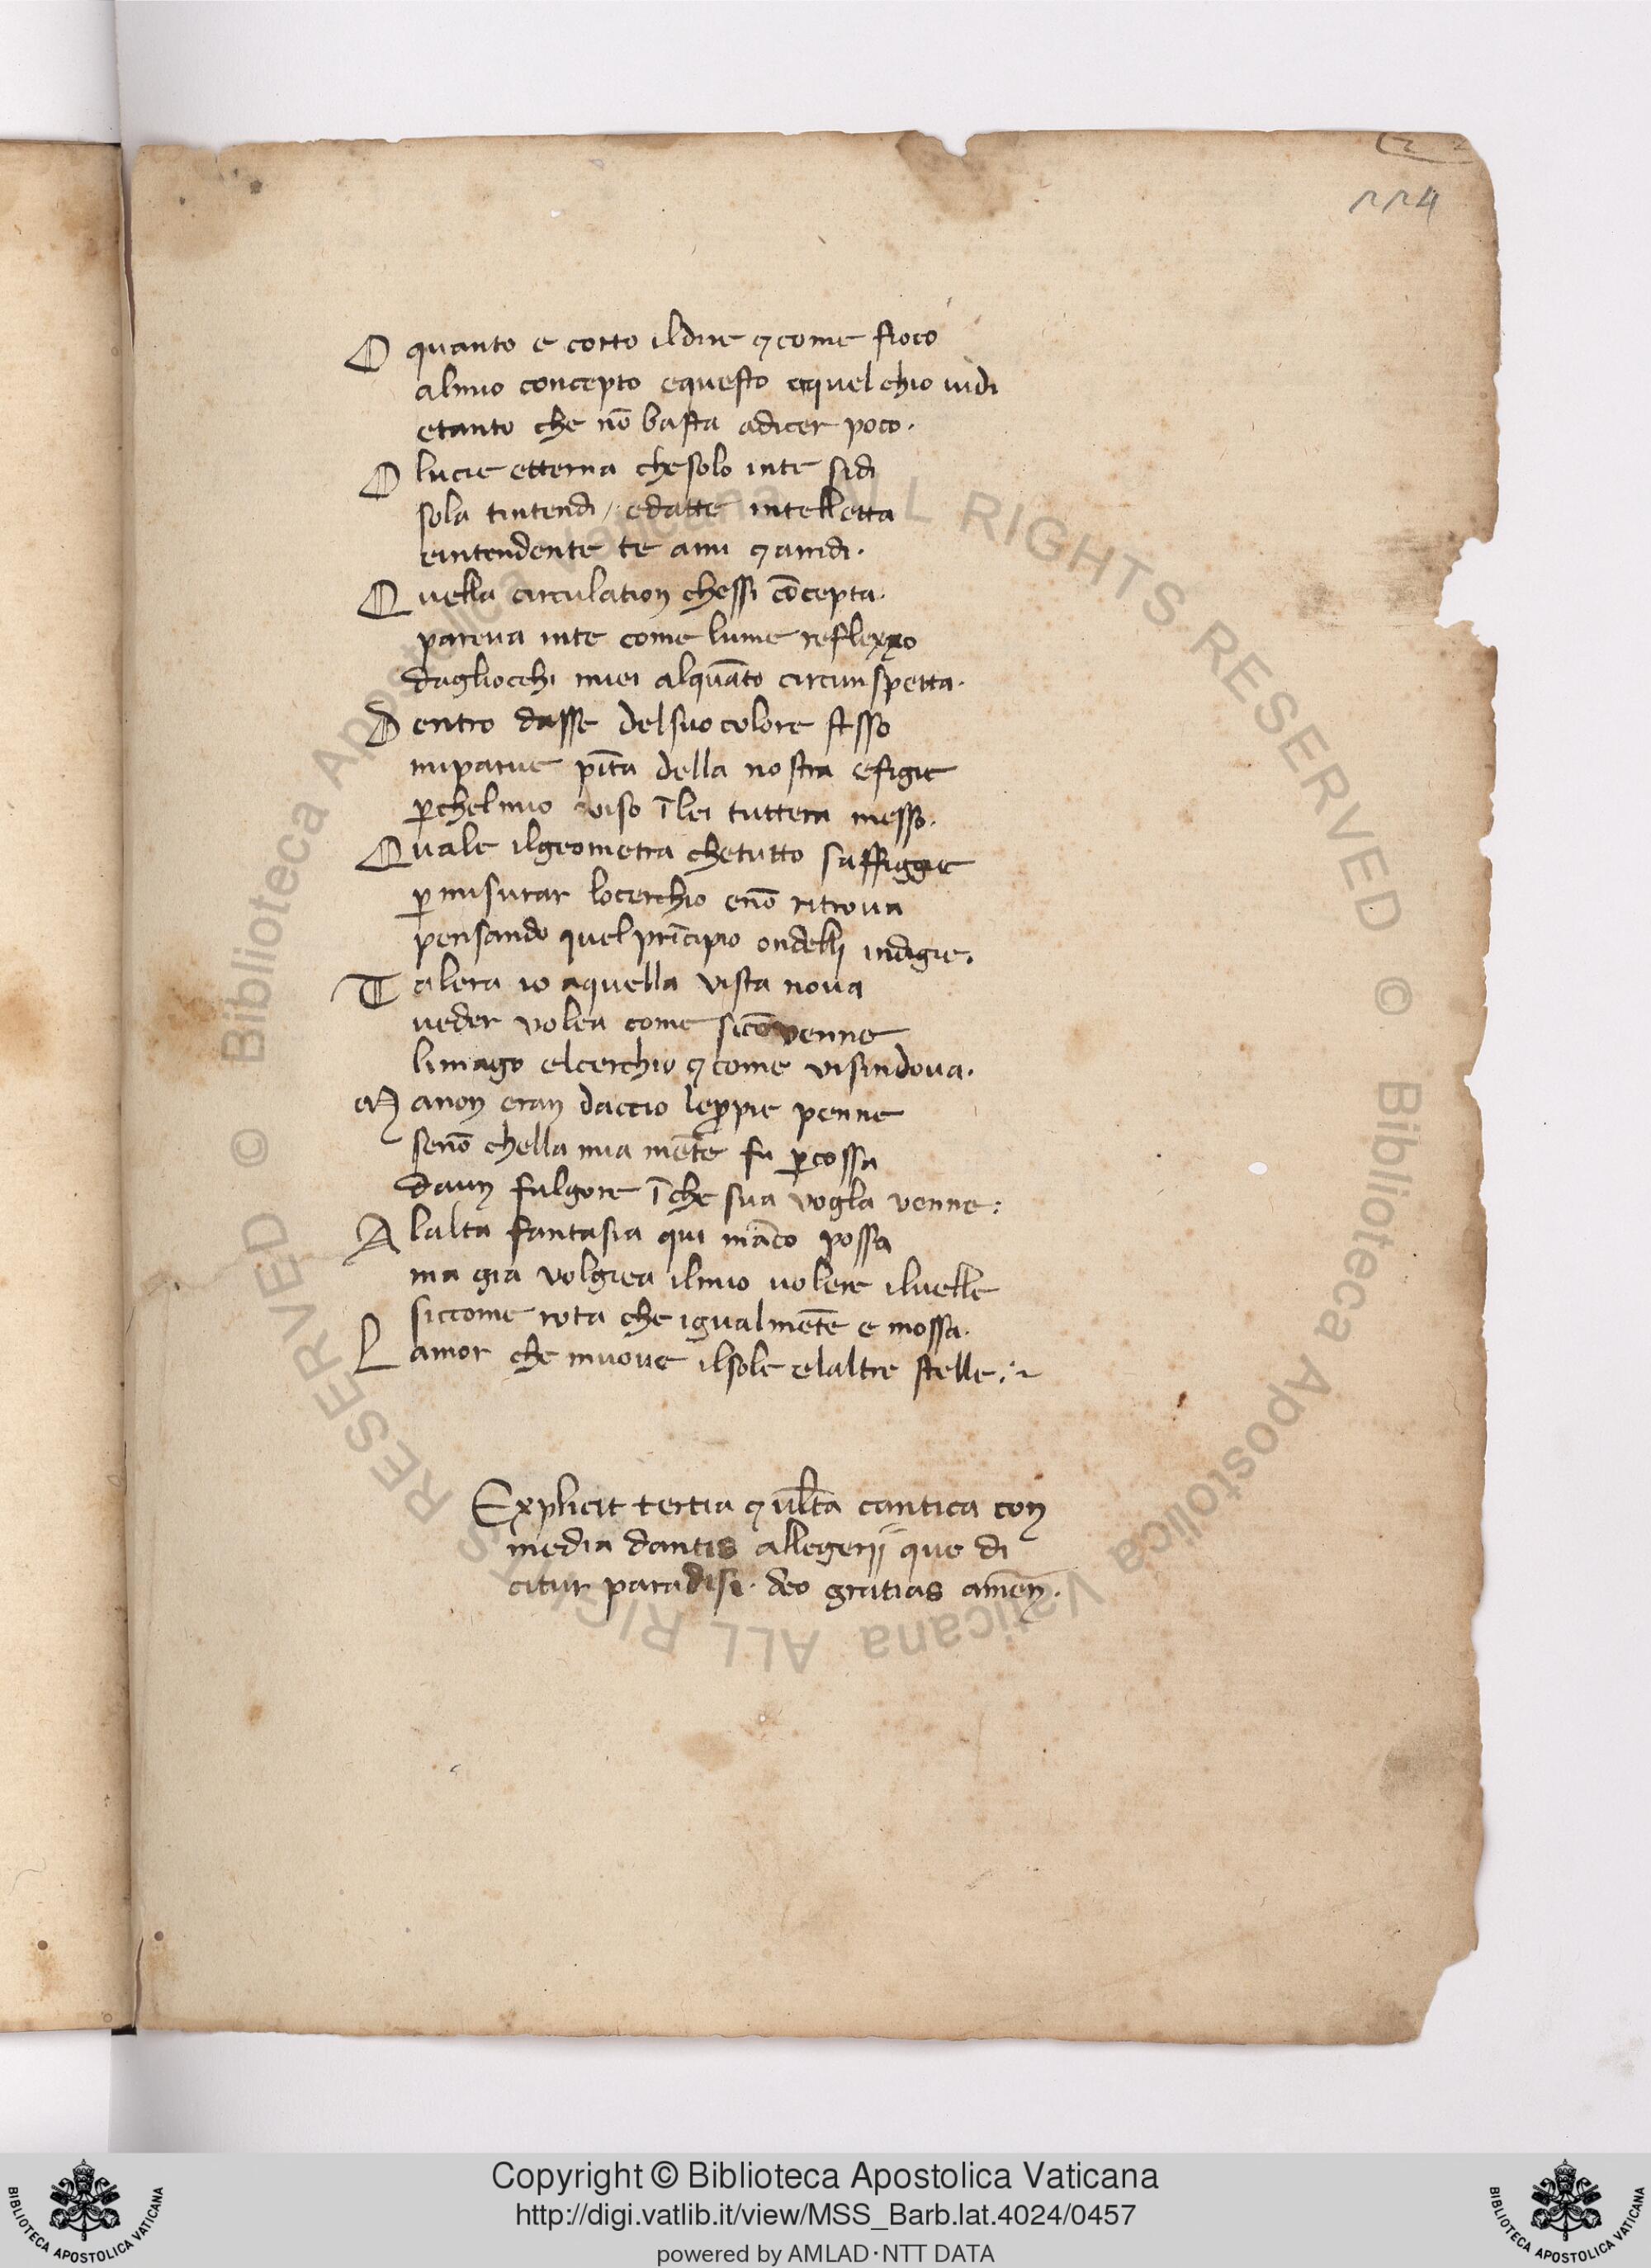 224
O quanto e corto ildire ⁊ come fioco
almio concepto equesto aquel chio vidi
etanto che nõ basta adicer poco.
O lucie etterna chesolo inte sidi
sola tintendi / edatte intelletta
eintendente te ami ⁊ arridi.
Quella circulation chessi cõcepta.
pareua inte come lume reflexxo
dagliocchi miei alquãto circunspetta.
Dentro dasse delsuo colore stesso
miparue pĩta della nostra efigie
ꝑchelmio viso ĩ lei tuttera messo.
Quale ilgeometra chetutto saffiggie
ꝑ misurar locerchio enõ ritroua
pensando quel prĩcipio ondelli indigie.
Talera io aquella vista noua
ueder volea come sicõvenne
limago elcerchio ⁊ come visindoua.
Manon eran daccio leꝓpie penne
senõ chella mia mẽte fu ꝑcossa
daun fulgore ĩ che sua vogla venne:
Alalta fantasia qui mãco possa
ma gia volgiea ilmio uolere iluelle
siccome rota che igualmẽte e mossa.
Lamor che muoue ilsole elaltre stelle:~
Explicit tertia ⁊ vl̃ta cantica con
media dantis allegerij que di
citur paradisi. deo gratias amen̄.
© Biblioteca Apostolica Vaticana ALL RIGHTS RESERVED © Biblioteca Apostolica Vaticana ALL RIGHTS RESERVED
Copyright © Biblioteca Apostolica Vaticana
http://digi.vatlib.it/view/MSS_Barb.lat.4024/0457
powered by AMLAD·NTT DATA
BIBLIOTECA APOSTOLICA VATICANA
BIBLIOTECA APOSTOLICA VATICANA